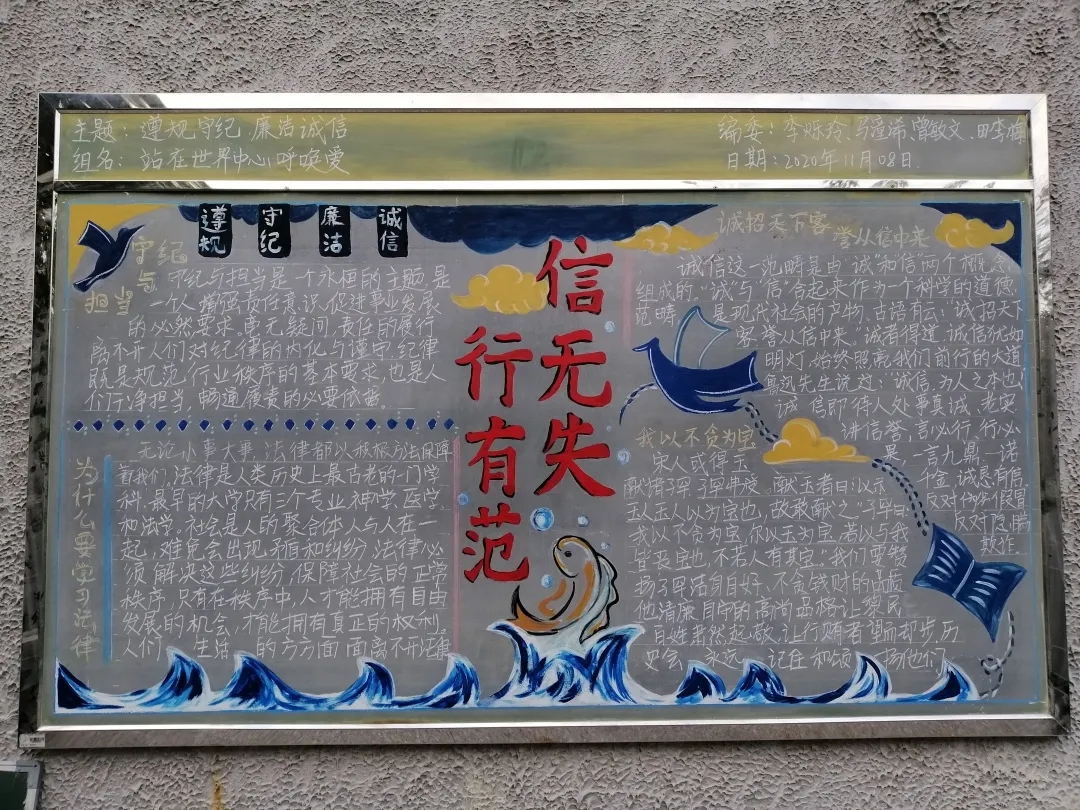 主题：遵规守纪 廉洁诚信
组名：站在世界中心呼唤爱
编委：李烁玲、马滢浠、曾敏文、田李
日期：2020年11月08日
遵规
守纪
廉洁
诚信
信无失
行有范
守纪与担当
守纪与担当是一个永恒的主题,是
一个人增强责任意识,促进事业发展
的必然要求,毫无疑问,责任的履行
离不开人们对纪律的内化与谨守,纪律
既是规范行业秩序的基本要求,也是人
们干净担当,畅通履责的必要依凭。
为什么要学习法律
无论小事大事,法律都以积极方法保障
着我们,法律是人类历史上最古老的一门学
科,最早的大学只有三个专业,神学,医学
和法学。社会是人的聚合体,人与人在一
起,难免会出现矛盾和纠纷,法律必
须解决这些纠纷,保障社会的正常
秩序,只有在秩序中,人才能拥有自由
发展的机会,才能拥有真正的权利。
人们 生活 的方方面面离不开法律
诚招天下客 誉从信中来
诚信这一范畴是由“诚”和“信”两个概念
组成的“诚”与“信”合起来作为一个科学的道德
范畴 是现代社会的产物,古语有云：“诚招天下
客,誉从信中来。”诚者信道,诚信犹如
明灯,始终照亮我们前行的大道
鲁迅先生说过：“诚信,为人之本也”
诚信即待人处事真诚、老实
讲信誉,言必行,行必
果 一言九鼎一诺
千金,诚恳有信
反对 假冒
反对隐瞒
欺诈。
我以不贪为宝
宋人或得玉
献诸子罕,子罕弗受。献玉者曰：以示
玉人,玉人以为宝也,故敢献之。”子罕曰
“我以不贪为宝,你以玉为宝,若以与我
皆丧宝也,不若人有其宝。”我们要赞
扬子罕洁身自好,不贪钱财的品德
他清廉自守的高尚品格让黎民
百姓肃然起敬,让行贿者望而却步,历
史会 永远 记住和颂 扬他们